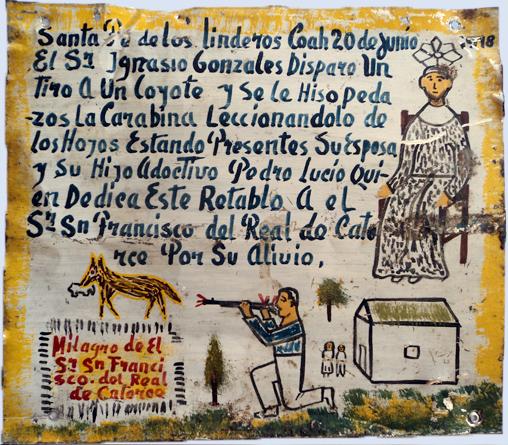 Santa Fe de los linderos Coah 20 de junio 18
El Sr. Ignasio Gonzales Disparo Un
Tiro A Un Coyote y Se Le Hiso peda
-zos La Carabina Leccionandolo de
los Hojos Estando Presentes Su Esposa
y Su Hijo Adoctivo Pedro Lucio Qui-
en Dedica Este Retablo A el
Sr. Sn Francisco del Real de Cato
rce Por Su Alivio,
Milagro de El
Sr Sn Franci
sco. del Real
de Catorce